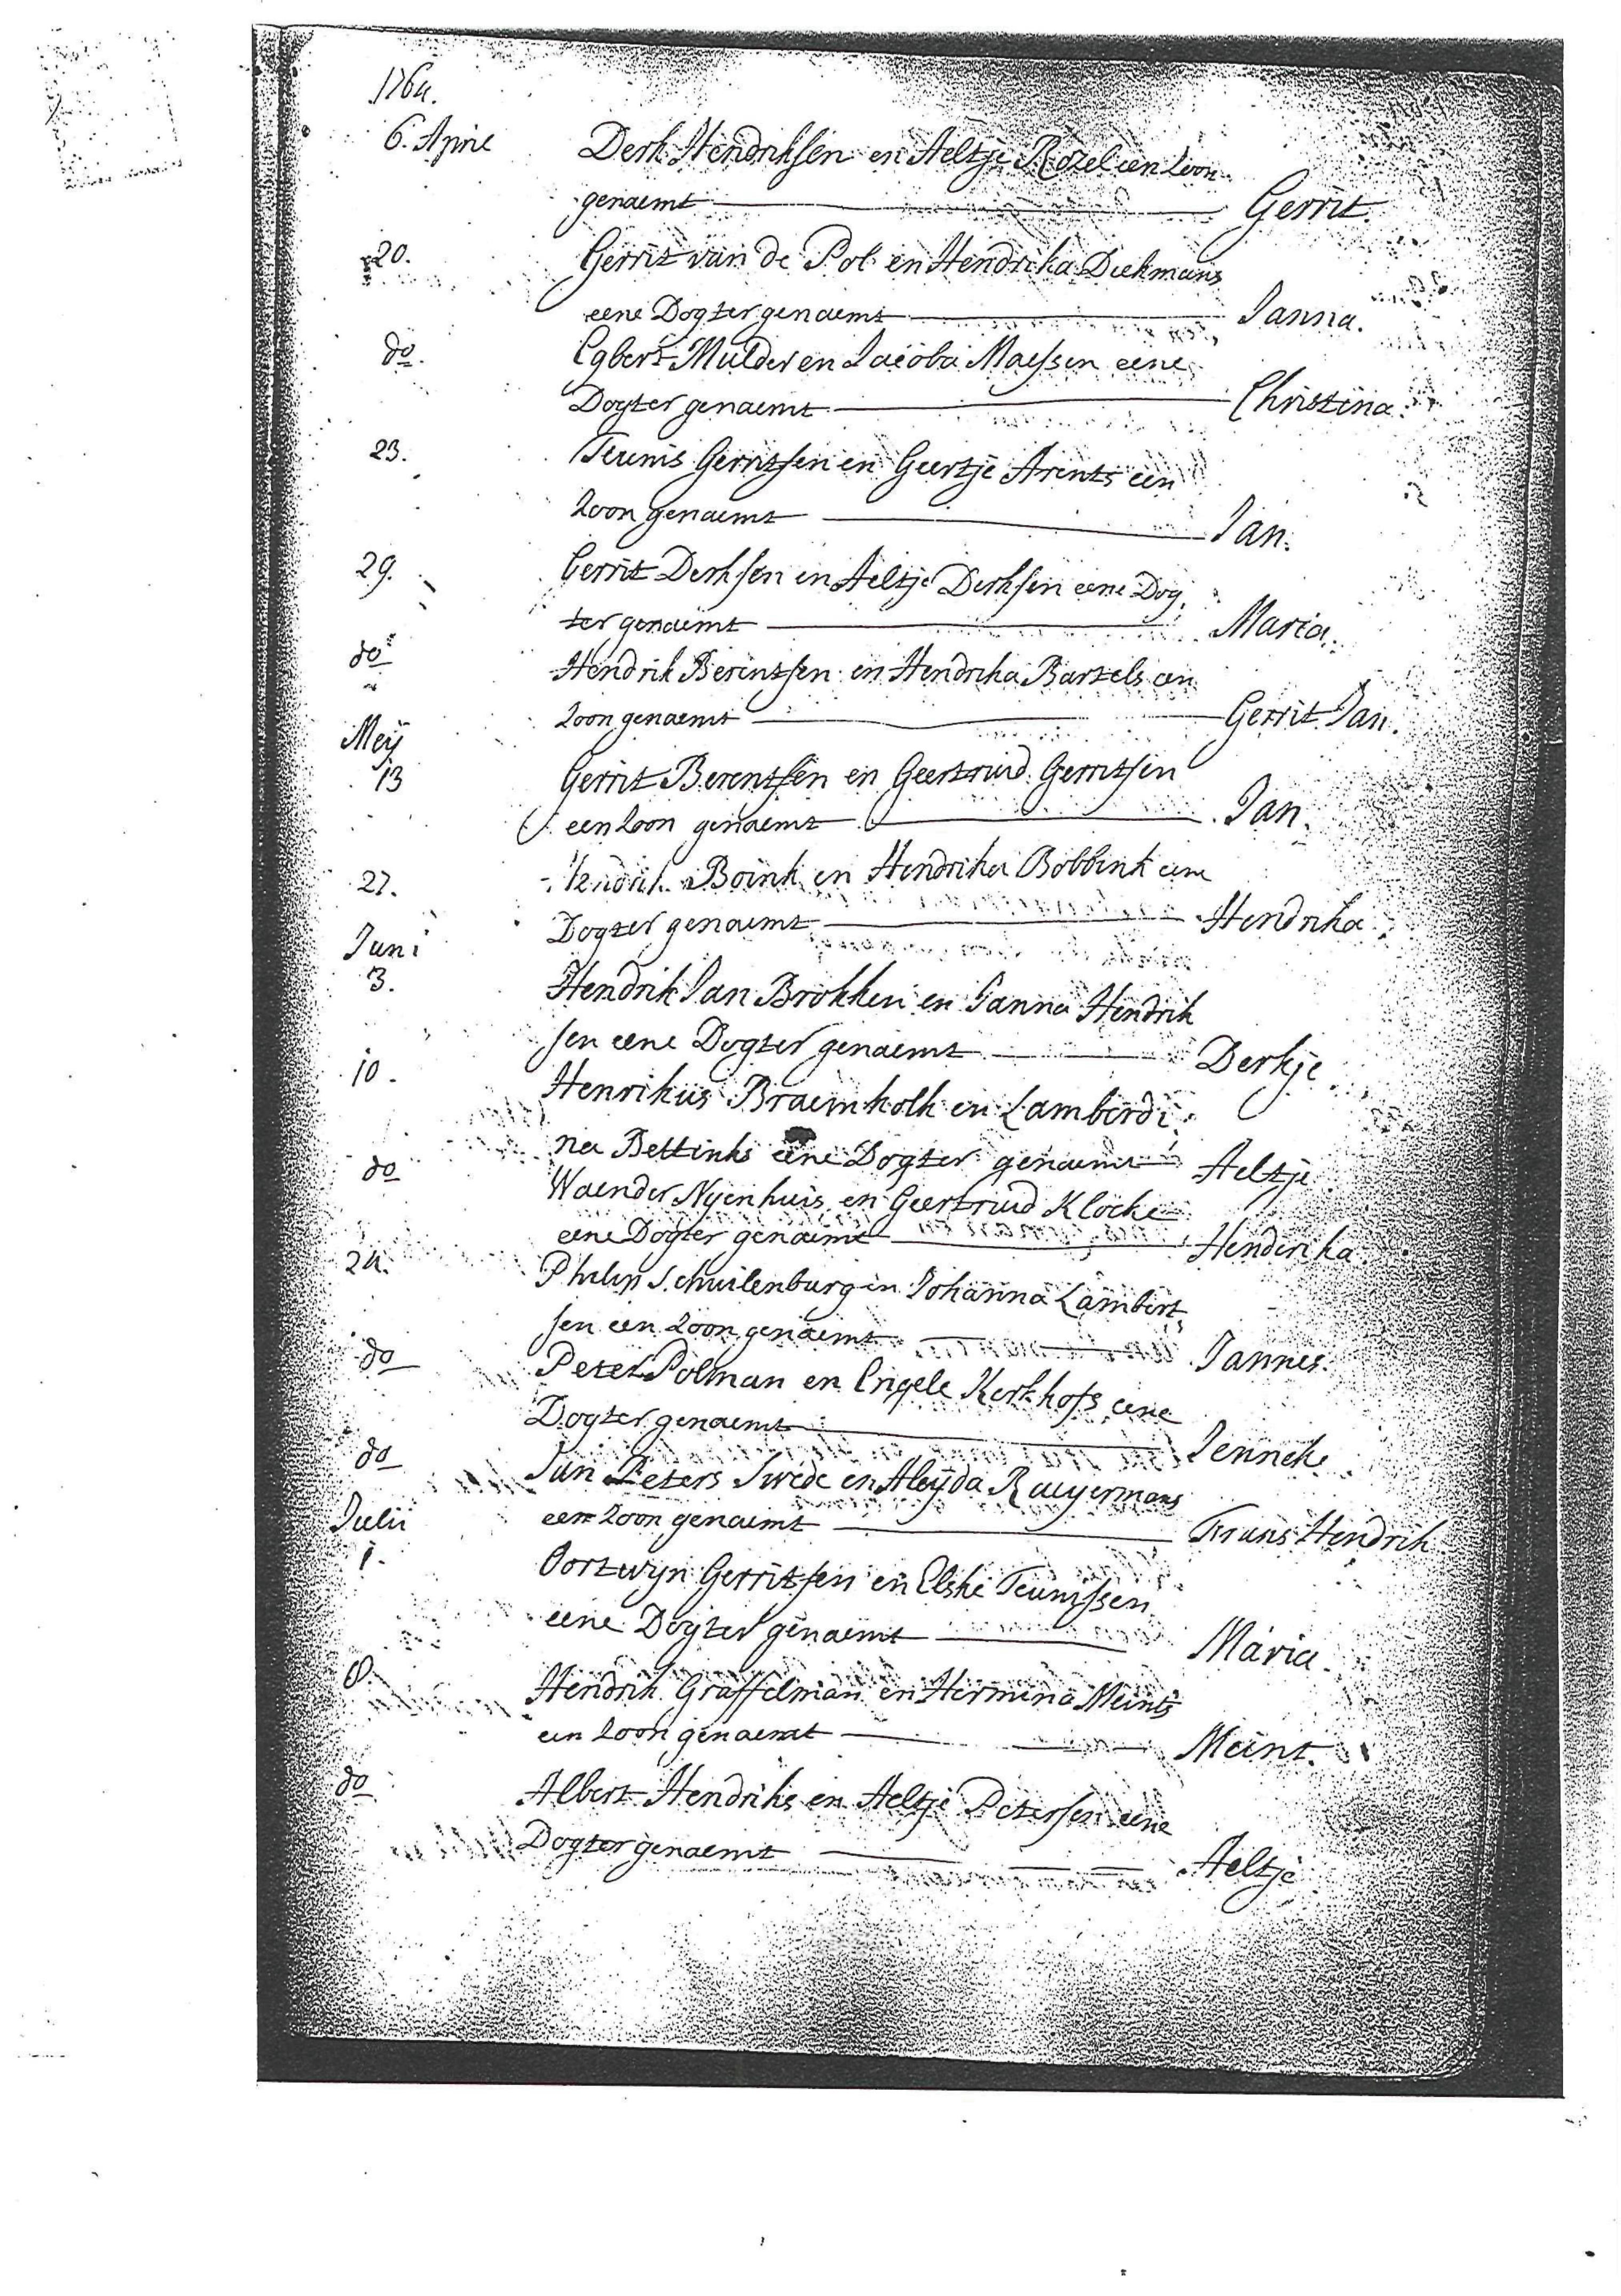 1764.
6. April Derk Hendriksen en Aeltje Rozel een Zoon
genaemt Gerrit.
20. Gerrit van de Pol en Hendrika Diekmans
eene Dogter genaemt Janna.
do. Egbert Mulder en Jacoba Maessen eene
Dogter genaemt Christina.
23. Teunis Gerritsen en Geertje Arents een
Zoon genaemt Jan.
29. Gerrit Derksen en Aeltje Derksen eene Dog
ter genaemt Maria.
do Hendrik Berentsen en Hendrika Bartels een
Zoon genaemt Gerrit Jan.
Meij
13 Gerrit Berentsen en Geertruid Gerritsen
een Zoon genaemt Jan.
27. Hendrik Boink en Hendrika Bobbink eene
Dogter genaemt Hendrika.
Juni
3. Hendrik Jan Brokken en Janna Hendrik
sen eene Dogter genaemt Derkje.
10. Henrikus Braemkolk en Lamberdi
na Bettinks eene Dogter genaemt Aeltje
do Waender Nyenhuis en Geertruid Klocke
eene Dogter genaemt Henderika.
24. Philip Schuilenburg en Johanna Lambert
sen een Zoon genaemt Jannes.
do Peter Polman en Engele Kerkhofs eene
Dogter genaemt Jenneke
do Jan Peters Swede en Aleijda Rueyermans
een Zoon genaemt Frans Hendrik
Julii
1. Oortwyn Gerritsen en Elske Teunissen
eene Dogter genaemt Maria.
8. Hendrik Graffelman en Hermina Meints
een Zoon genaemt Meint.
do Albert Hendriks en Aeltje Petersen eene
Dogter genaemt Aeltje